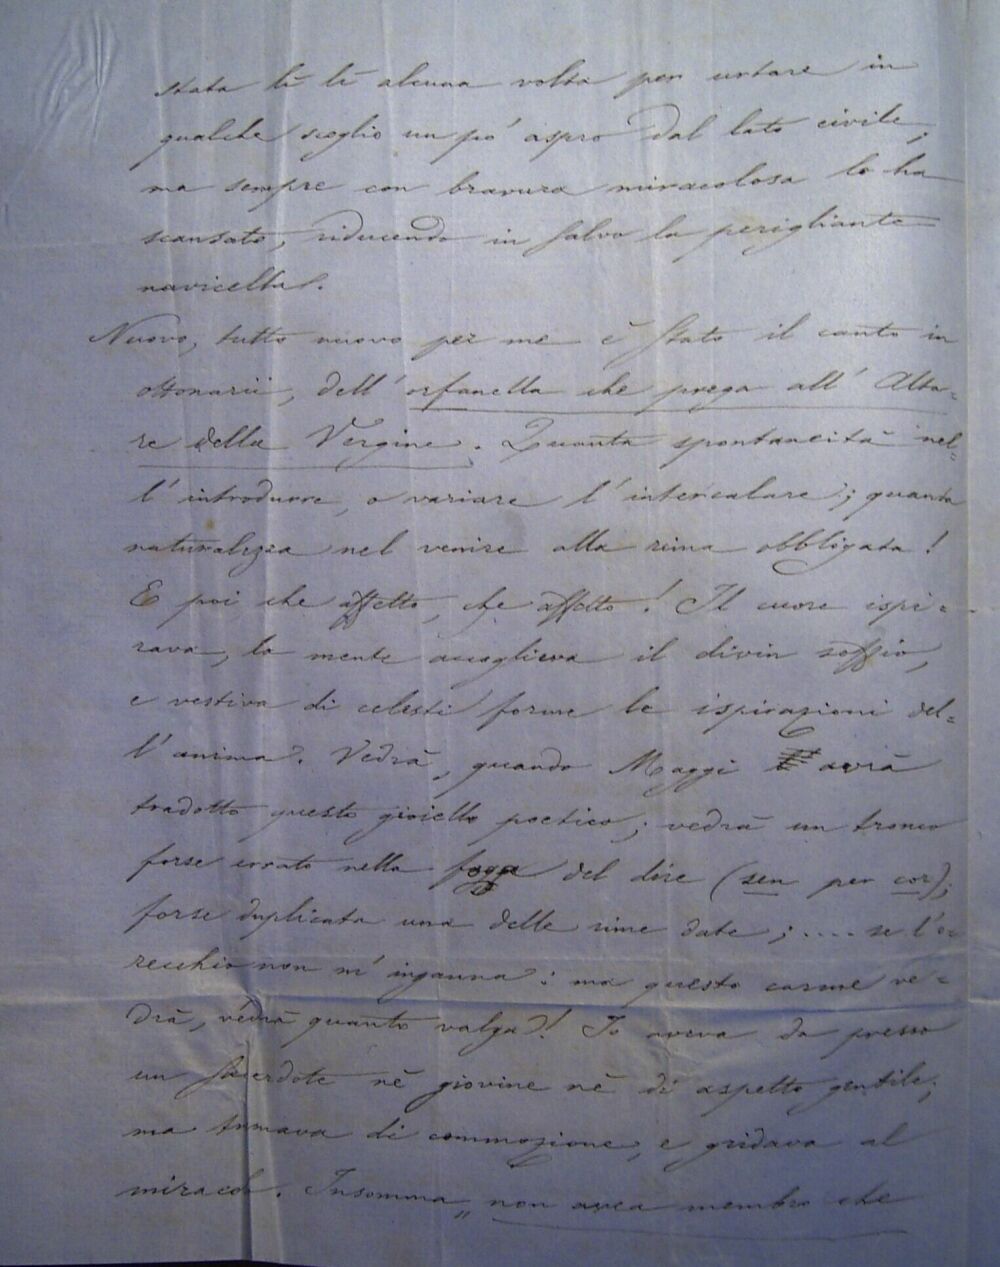 stata lì lì alcuna volta per urtare in
qualche scoglio un po' aspro dal lato civile,
ma sempre con bravura miracolosa lo ha
scansato, riducendo in salvo la perigliante
navicella.
Nuovo, tutto nuovo per me è stato il canto in
ottonarii, dell'orfanella che prega all'Alta=
re della Vergine. Quanta spontaneità nel=
l'introdurre, o variare l'intercalare; quanta
naturalezza nel venire alla rima obbligata!
E poi che affetto, che affetto! Il cuore ispi=
rava, la mente accoglieva il divin soffio,
e vestiva di celesti forme le ispirazioni del=
l'anima. Vedrà, quando Maggi avrà
tradotto questo gioiello poetico; vedrà un tronco
forse errato nella foga del dire (sen per cor);
forse duplicata una delle rime date; .... se l'o=
recchio non m'inganna: ma questo carme ve=
drà, vedrà quanto valga! Io aveva da presso
un Sacerdote nè giovine nè di aspetto gentile;
ma tremava di commozione, e gridava al
miracolo. Insomma „ non avea membro che